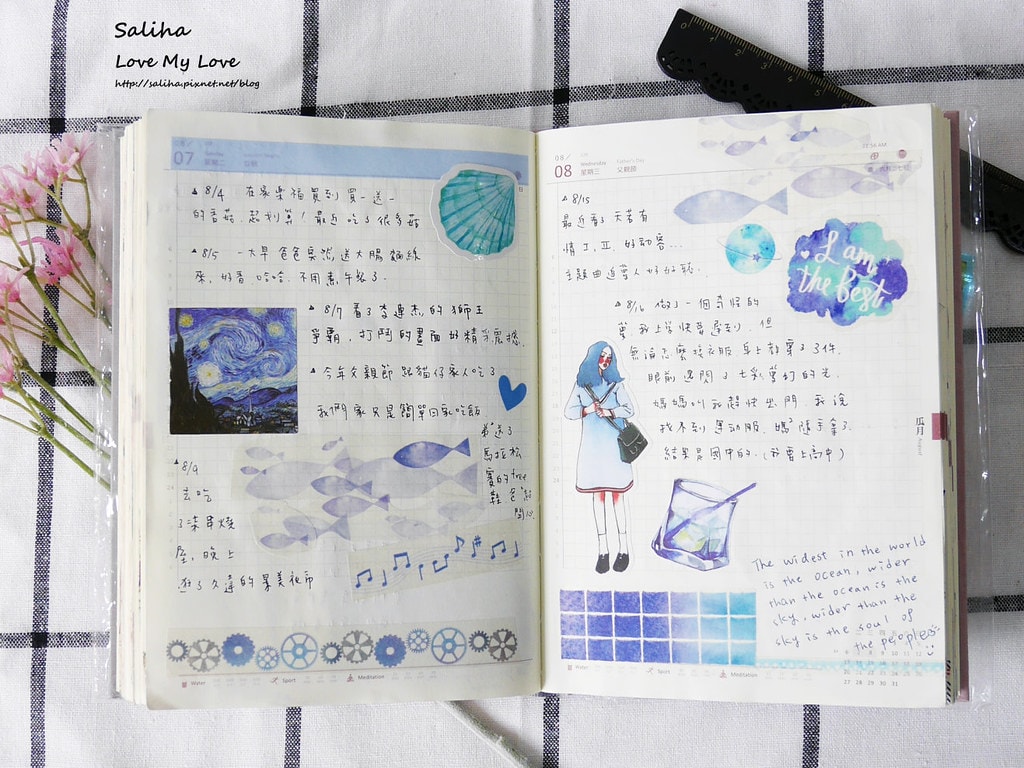 Saliha
Love My Love
http://saliha.pixnet.net/blog
08/
07
星期二
▲ 8/4 在家樂福買到買一送一
的香菇,超划算!最近吃了很多菇
▲ 8/5 一大早爸爸突然送大腸麵線
來,好香 哈哈. 不用煮午餐了.
▲ 8/7 看了李連杰的獅王
爭霸,打鬥的畫面好精彩震撼.
▲ 今年父親節 跟貓仔家人吃了
我們家只是簡單回家吃飯
弟弟送了
馬拉松
賽的free
鞋
▲ 8/9
去吃
串燒
晚上
逛了久違的景美夜市
Water
Sport
Meditation
08/
08
Wednesday
星期三
Father's Day
父親節
▲ 8/15
最近看了天若有
情I,II 好動容...
主題曲迴盪人好好聽.
▲ 8/16 做了一個奇怪的
夢 我上學快要遲到,但
無論怎麼換衣服 身上都穿了3件.
眼前還閃了七彩夢幻的光.
媽媽叫我趕快出門 我說
找不到運動服. 媽媽隨手拿了.
結果是國中的.(我要上高中)
I am
the Best
0 1 2 3 4 5
The widest in the world
is the ocean, wider
than the ocean is the
sky, wider than the
sky is the soul of
the peoples
27 28 29 30 31
Water
Sport
Meditation